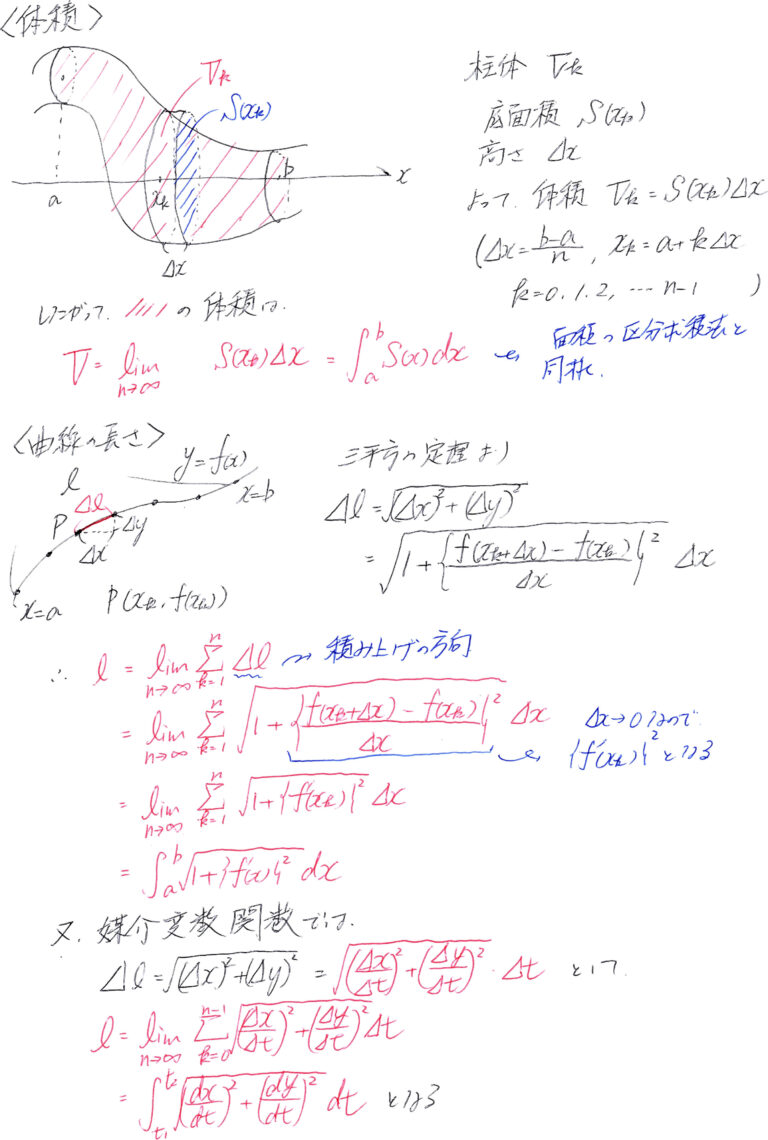 〈体積〉
V_k
S(x_k)
a
x_k
b
x
Δx
柱体 V_k
底面積 S(x_k)
高さ Δx
よって、体積 V_k = S(x_k)Δx
(Δx = (b-a)/n , x_k = a + kΔx
k = 0, 1, 2, … n-1 )
したがって、/// の体積は、
V = lim_{n→∞} S(x_k)Δx = ∫_a^b S(x)dx
面積の区分求積法と
同様。
〈曲線の長さ〉
l
y = f(x)
x = b
Δl
P
Δy
Δx
x = a
P(x_k, f(x_k))
三平方の定理より
Δl = √((Δx)² + (Δy)²)
= √(1 + {(f(x_k+Δx) - f(x_k))/Δx}²) Δx
∴ l = lim_{n→∞} Σ_{k=1}^{n} Δl 積み上げの方向
= lim_{n→∞} Σ_{k=1}^{n} √(1 + {(f(x_k+Δx) - f(x_k))/Δx}²) Δx
Δx→0なので
{f'(x_k)}² となる
= lim_{n→∞} Σ_{k=1}^{n} √(1 + {f'(x_k)}²) Δx
= ∫_a^b √(1 + {f'(x)}²) dx
又、媒介変数関数では、
Δl = √((Δx)² + (Δy)²) = √((Δx/Δt)² + (Δy/Δt)²)・Δt として
l = lim_{n→∞} Σ_{k=0}^{n-1} √((Δx/Δt)² + (Δy/Δt)²) Δt
= ∫_{t₁}^{t₂} √((dx/dt)² + (dy/dt)²) dt となる